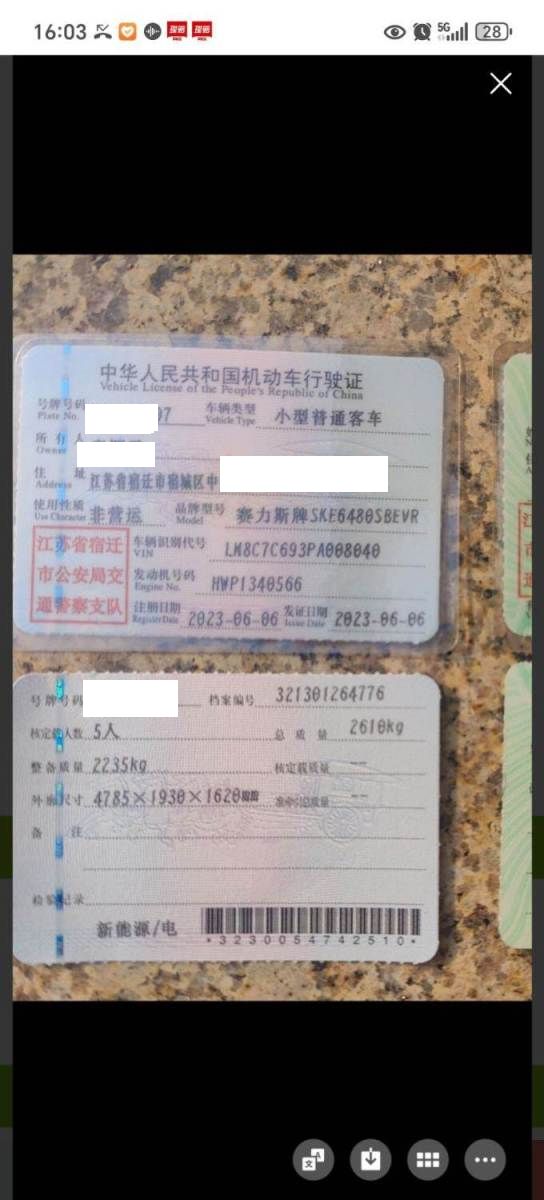 16:03
5G
28
中华人民共和国机动车行驶证
Vehicle License of the People's Republic of China
号牌号码 97 车辆类型 小型普通客车
Plate No. Vehicle Type
所有人
Owner
住址 江苏省宿迁市宿城区中
Address
使用性质 非营运 品牌型号 赛力斯牌SKE6480SBEVR
Use Character Model
江苏省宿迁
市公安局交
通警察支队
车辆识别代号 LM8C7C693PA008040
VIN
发动机号码 HWP1340566
Engine No.
注册日期 2023-06-06 发证日期 2023-06-06
Register Date Issue Date
号牌号码 档案编号 321301264776
核定载人数 5人 总质量 2610kg
整备质量 2235kg 核定载质量 --
外廓尺寸 4785×1930×1620mm 准牵引总质量 --
备注
检验记录
新能源/电
*3230054742510*